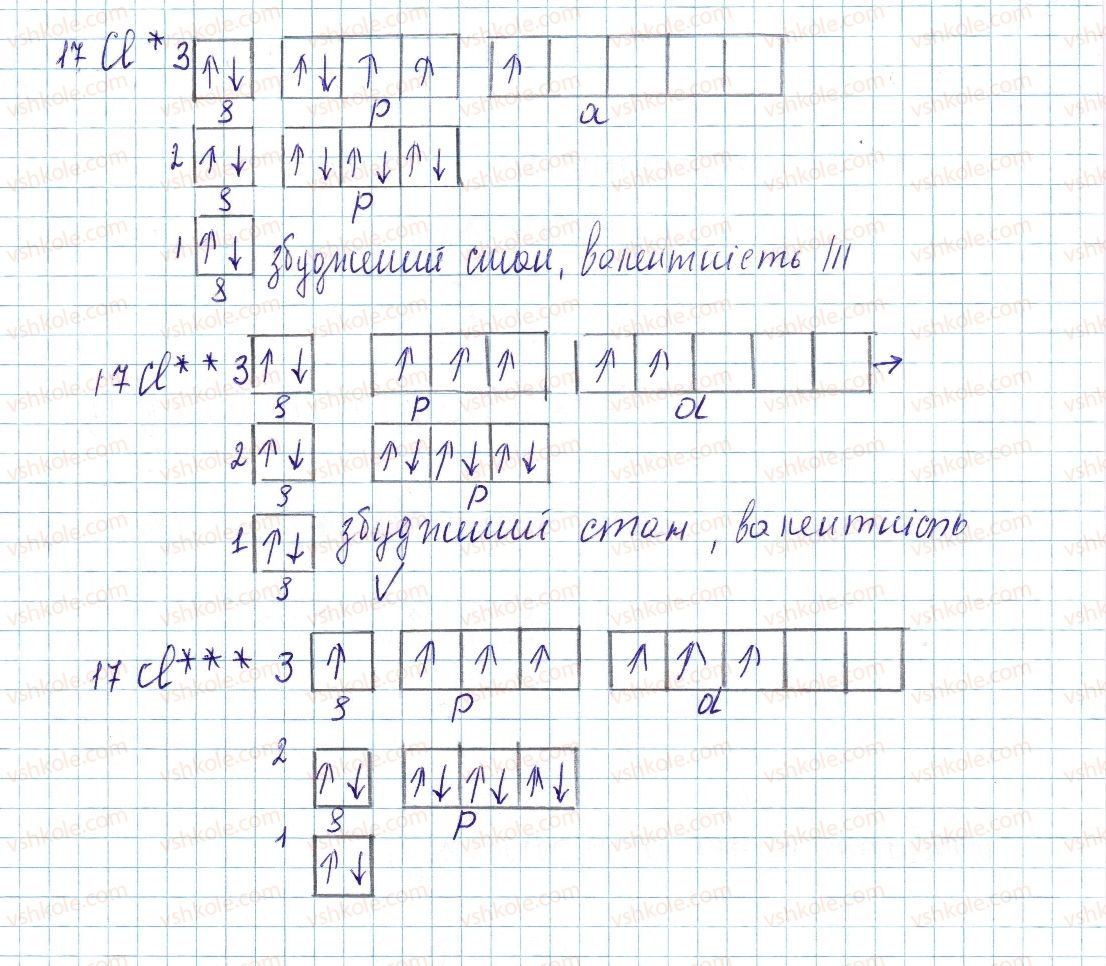 17 Cl * 3 ↑↓ ↑↓ ↑ ↑ ↑
s p d
2 ↑↓ ↑↓ ↑↓ ↑↓
s p
1 ↑↓ збуджений стан, валентність III
s
17 Cl ** 3 ↑↓ ↑ ↑ ↑ ↑ ↑ →
s p d
2 ↑↓ ↑↓ ↑↓ ↑↓
s p
1 ↑↓ збуджений стан, валентність
s V
17 Cl *** 3 ↑ ↑ ↑ ↑ ↑ ↑ ↑
s p d
2 ↑↓ ↑↓ ↑↓ ↑↓
s p
1 ↑↓